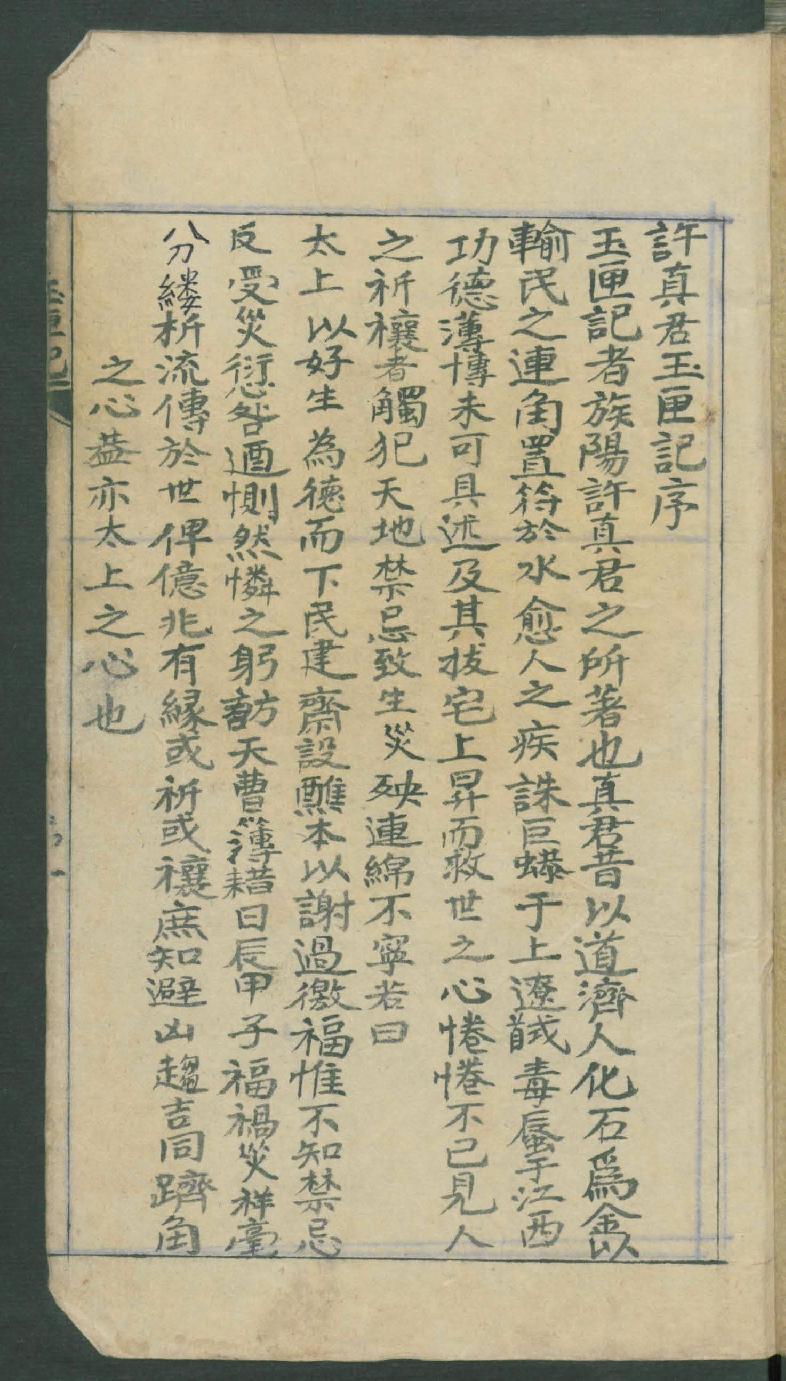 許真君玉匣記序
玉匣記者族陽許真君之所著也真君昔以道濟人化石爲金以
輸民之連角置符於水愈人之疾誅巨蟒于上遼馘毒蜃于江西
功德薄博未可具述及其拔宅上昇而救世之心惓惓不已見人
之祈禳者觸犯天地禁忌致生災殃連綿不寧若曰
太上以好生為德而下民建齋設醮本以謝過徼福惟不知禁忌
反受災愆咎迺惻然憐之躬詣天曹簿耤日辰甲子福禍災祥毫
分縷析流傳於世俾億兆有緣或祈或禳庶知避凶趨吉同躋角
之心蓋亦太上之心也
玉匣記